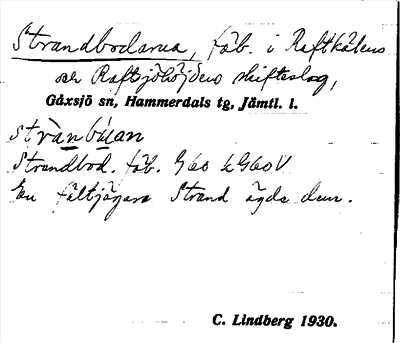 Strandbodarna, fäb. i Raftkälens
och Raftsjöhöjdens skifteslag,
Gåxsjö sn, Hammerdals tg, Jämtl. l.
strànbúan
Strandbod. fäb. G60 k G60V
En fältjägare Strand ägde den.
C. Lindberg 1930.